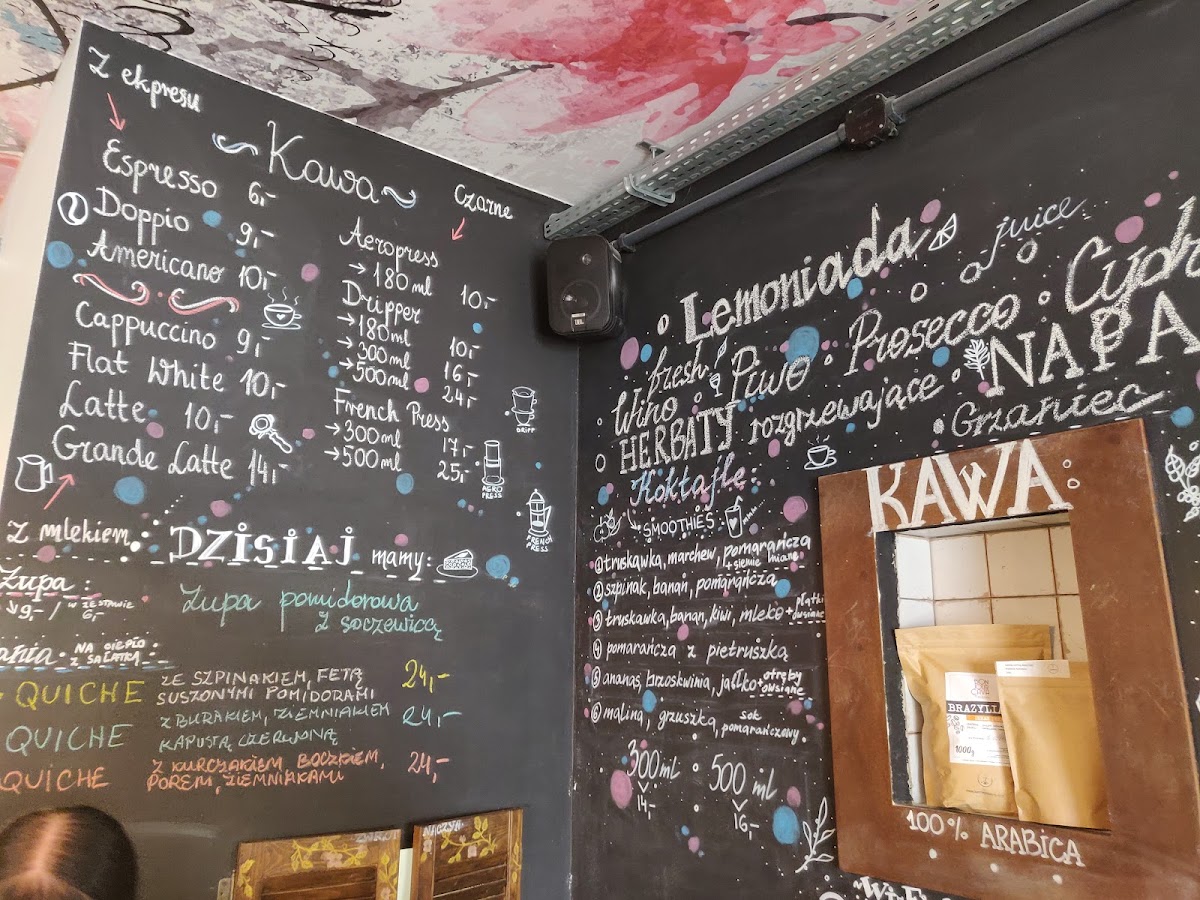 Z ekpresu
Kawa
Czarne
Espresso 6,-
Doppio 9,-
Americano 10,-
Cappuccino 9,-
Flat White 10,-
Latte 10,-
Grande Latte 14,-
Z mlekiem
Aeropress
→ 180 ml 10,-
Dripper
→ 180 ml 10,-
→ 300 ml 16,-
→ 500 ml 24,-
French Press
→ 300 ml 17,-
→ 500 ml 25,-
DRIPP
AERO
PRESS
FRENCH
PRESS
DZISIAJ mamy:
Zupa:
9,- / W ZESTAWIE
6,-
Zupa pomidorowa
z soczewicą
NA CIEPŁO
Z SAŁATKĄ
QUICHE ZE SZPINAKIEM, FETĄ 24,-
SUSZONYMI POMIDORAMI
QUICHE Z BURAKIEM, ZIEMNIAKIEM 24,-
KAPUSTĄ CZERWONĄ
QUICHE Z KURCZAKIEM, BOCZKIEM, 24,-
POREM, ZIEMNIAKAMI
Lemoniada
juice
fresh
Wino Piwo Prosecco
HERBATY rozgrzewające
NAPA
Grzaniec
Koktajle
SMOOTHIES:
1 truskawka, marchew, pomarańcza
+ siemie lniane
2 szpinak, banan, pomarańcza
3 truskawka, banan, kiwi, mleko + płatki
owsiane
4 pomarańcza z pietruszką
5 ananas, brzoskwinia, jabłko + otręby
owsiane
6 malina, gruszka, sok
pomarańczowy
300 ml 500 ml
14,- 16,-
KAWA
BRAZYL
1000g
100% ARABICA